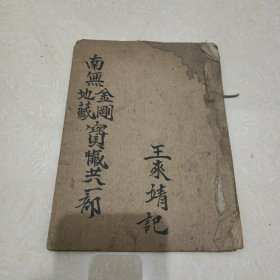 南無金剛地藏寶懺共一部
王來靖記